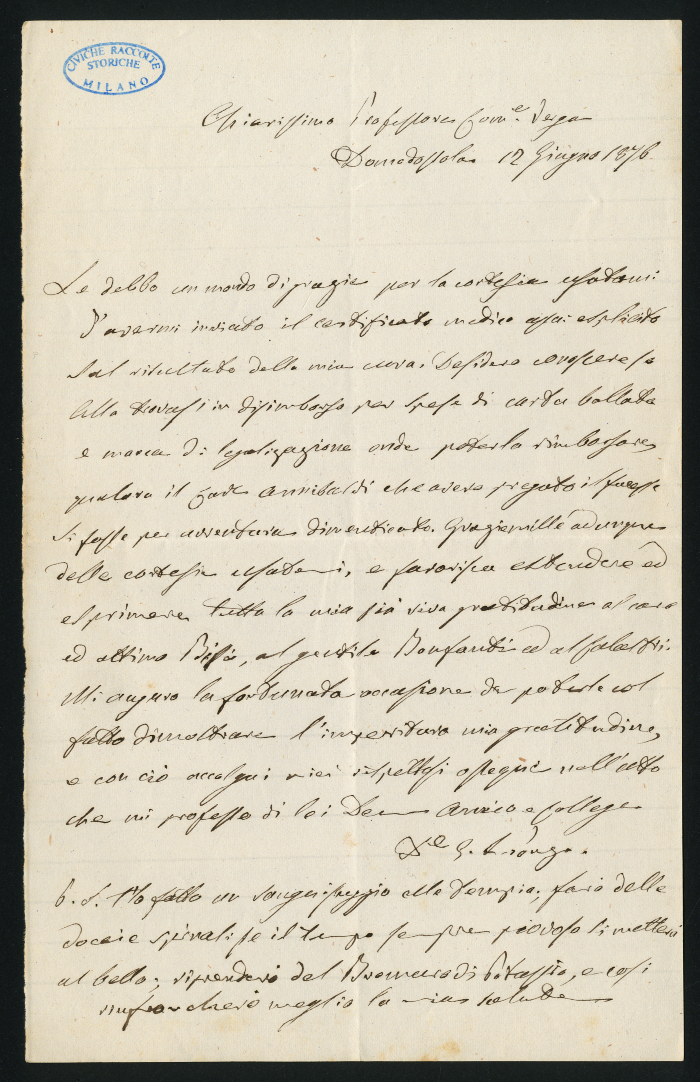 CIVICHE RACCOLTE
STORICHE
MILANO
Chiarissimo Professore Come. Verga
Domodossola 12 Giugno 1876.
Le debbo un mondo di grazie per la cortesia usatami
d'avermi inviato il certificato medico assai esplicito
sul risultato della mia cura. Desidero conoscere se
Ella trovasi in disimborso per spese di carta bollata
e marca di legalizzazione onde poterla rimborsare,
qualora il Annibaldi che avevo pregato il facesse
si fosse per avventura dimenticato. Grazie mille adunque
delle cortesie usatemi, e favorisca estendere ed
esprimere tutta la mia più viva gratitudine al caro
ed ottimo al gentile Bonfanti ed
Mi auguro la fortunata occasione da poterle col
fatto dimostrare l'imperitura mia gratitudine,
e con ciò accolga i miei rispettosi ossequi nell'atto
che mi professo di Lei Dev Amico e Collega
De G.
P. S. Ho fatto un alle Terme; farò delle
doccie spinali se il tempo sempre piovoso si metterà
al bello; riprenderò del Bromuro di Potassio, e così
rinfrancherò meglio la mia salute